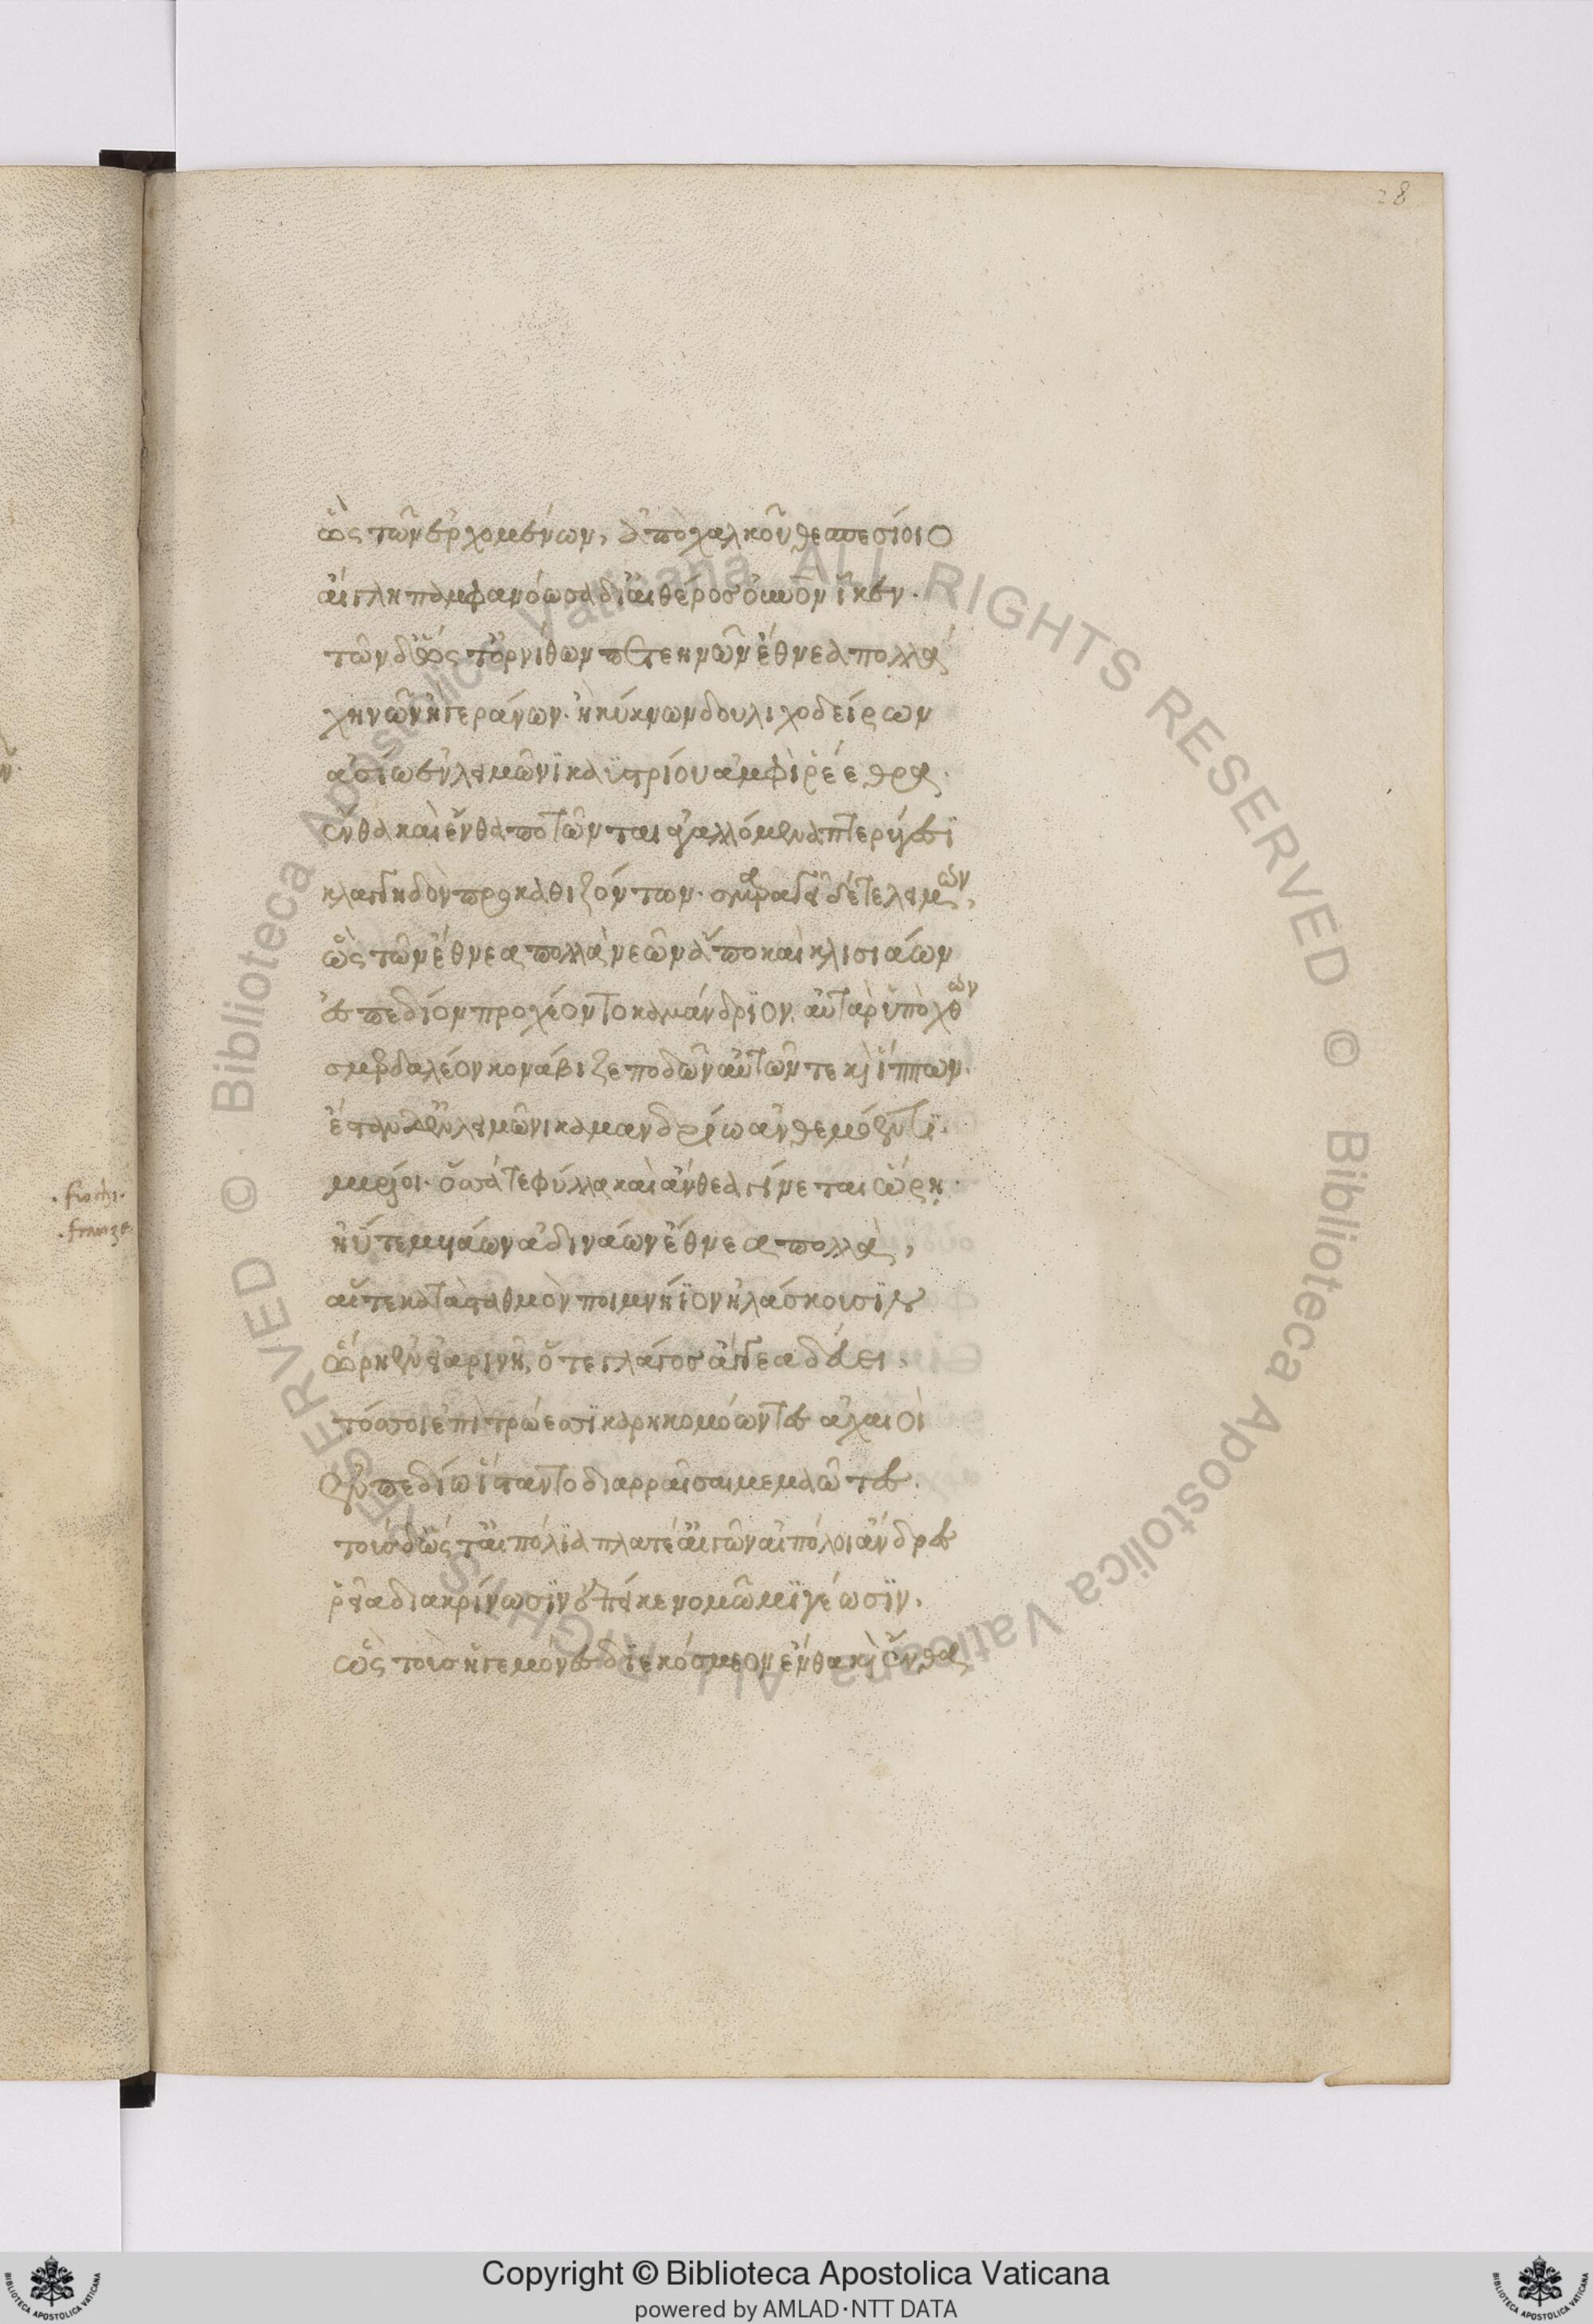 28
ὣς τῶν ἐρχομένων, ἀπὸ χαλκοῦ θεσπεσίοιο
αἴγλη παμφανόωσα δι' αἰθέρος οὐρανὸν ἷκεν.
τῶν δ' ὥς τ' ὀρνίθων πετεηνῶν ἔθνεα πολλά
χηνῶν ἢ γεράνων. ἢ κύκνων δουλιχοδείρων
ἀσίω ἐν λειμῶνι καϋστρίου ἀμφὶ ῥέεθρα.
ἔνθα καὶ ἔνθα ποτῶνται ἀγαλλόμενα πτερύγεσι
κλαγγηδὸν προκαθιζόντων. σμαραγεῖ δέ τε λειμών,
ὣς τῶν ἔθνεα πολλὰ νεῶν ἄπο καὶ κλισιάων
ἐς πεδίον προχέοντο σκαμάνδριον. αὐτὰρ ὑπὸ χθών
σμερδαλέον κονάβιζε ποδῶν αὐτῶν τε καὶ ἵππων.
ἔσταν δ' ἐν λειμῶνι σκαμανδρίω ἀνθεμόεντι.
μυρίοι. ὅσσά τε φύλλα καὶ ἄνθεα γίνεται ὥρη.
ἠΰτε μυιάων ἀδινάων ἔθνεα πολλὰ,
αἵ τε κατὰ σταθμὸν ποιμνήϊον ἠλάσκουσιν
ὥρη ἐν εἰαρινῆ, ὅτε γλάγος ἄγγεα δεύει.
τόσσοι ἐπὶ τρώεσσι καρηκομόωντες ἀχαιοὶ
ἐν πεδίω ἵσταντο διαρραῖσαι μεμαῶτες.
τοὺς δ' ὥς τ' αἰπόλια πλατέ' αἰγῶν αἰπόλοι ἄνδρες
ῥεῖα διακρίνωσιν ἐπεί κε νομῶ μιγέωσιν.
ὣς τοὺς ἡγεμόνες διεκόσμεον ἔνθα καὶ ἔνθα
© Biblioteca Apostolica Vaticana ALL RIGHTS RESERVED
© Biblioteca Apostolica Vaticana ALL RIGHTS RESERVED
Copyright © Biblioteca Apostolica Vaticana
powered by AMLAD·NTT DATA
BIBLIOTECA APOSTOLICA VATICANA
BIBLIOTECA APOSTOLICA VATICANA